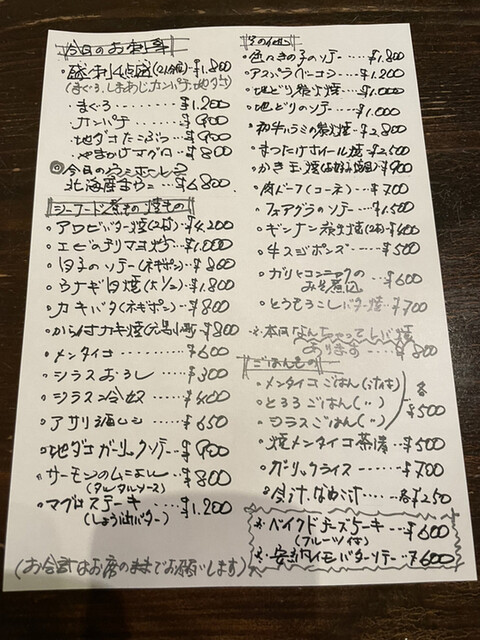 今日のお刺身
・盛刺4点盛(2人前位)¥1,800
(まぐろ、しまあじ、カンパチ、地ダコ)
・まぐろ………¥1,200
・カンパチ………¥900
・地ダコたこぶつ…¥900
・やまかけマグロ…¥800
◎今日の
北海産 …¥6,800
シーフード煮もの焼もの
・アワビバター焼(2ヶ)¥4,200
・エビのチリマヨ ¥1,000
・白子のソテー(ネギポン)…¥800
・ウナギ白焼(大1/2)…¥1,800
・カキバタ(ネギポン)…¥800
・からすカキ焼 ¥800
・メンタイコ………¥600
・シラスおろし……¥300
・シラス冷奴……¥400
・アサリ酒むし……¥650
・地ダコガーリックソテー…¥900
・サーモンのムニエル…¥800
(タルタルソース)
・マグロステーキ…¥1,200
(しょうゆバター)
(お会計はお席のままでお願いします)
その他
・色々きの子のソテー…¥1,800
・アスパラベーコン…¥1,200
・地どり炭火焼……¥1,000
・地どりのソテー……¥1,000
・和牛ハラミの炭火焼…¥2,800
・まつたけホイル焼…¥2,500
・かき玉焼(お好み焼風)¥900
・肉ビーフ(コーネ)…¥700
・フォアグラのソテー…¥1,500
・ギンナン 焼(2本)¥400
・牛スジポンズ……¥500
・ガリとコンニャクの
みそ煮込 ¥600
・とうもろこしバター焼…¥700
※本日なんちゃってレバ焼
あります……¥800
ごはんもの
・メンタイコごはん(
・とろろごはん(〃)
・シラスごはん(〃)
各¥500
・焼メンタイコ茶漬…¥500
・ガーリックライス……¥700
・合汁、なめ汁……各¥250
※ベイクドチーズケーキ…¥600
(フルーツ付)
※安納イモバターソテー…¥600